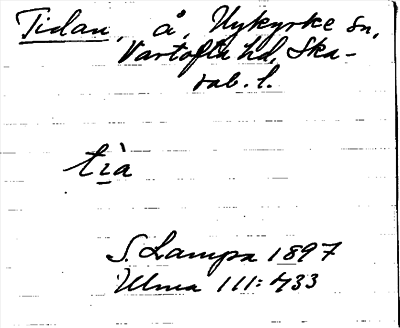 Tidan, å, Nykyrke sn,
Vartofta hd, Ska-
rab. l.
tı̀a
S. Lampa 1897
Ulma 111:433